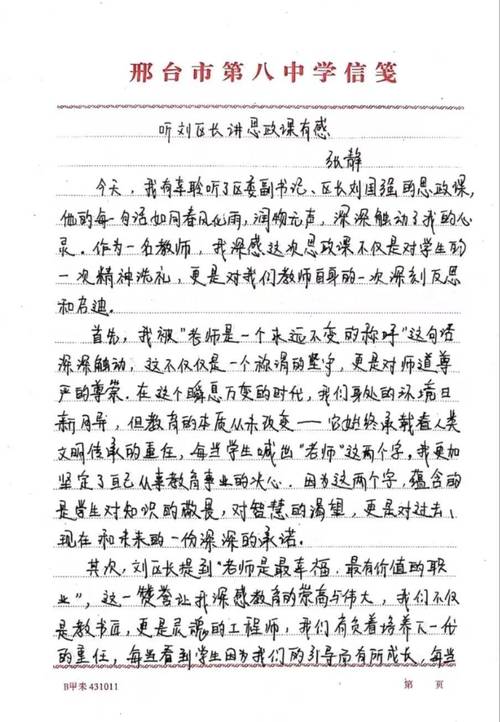 邢台市第八中学信笺
听刘区长讲思政课有感
张静
今天，我有幸聆听了区委副书记、区长刘国强的思政课，
他的每一句话如同春风化雨，润物无声，深深触动了我的心
灵。作为一名教师，我深感这次思政课不仅是对学生的
一次精神洗礼，更是对我们教师自身的一次深刻反思
和启迪。
首先，我被"老师是一个永远不变的称呼"这句话
深深触动，这不仅仅是一个称谓的坚守，更是对师道尊
严的尊崇。在这个瞬息万变的时代，我们身处的环境日
新月异，但教育的本质从未改变——它始终承载着人类
文明传承的重任，每当学生喊出"老师"这两个字，我更加
坚定了自己从事教育事业的决心。因为这两个字，蕴含的
是学生对知识的敬畏，对智慧的渴望，更是对过去、
现在和未来的一份深深的承诺。
其次，刘区长提到"老师是最幸福、最有价值的职
业"，这一赞誉让我深感教育的崇高与伟大，我们不仅
是教书匠，更是灵魂的工程师，我们肩负着培养下一代
的重任，每当看到学生因为我们的引导而有所成长，每当
B甲未431011 第 页